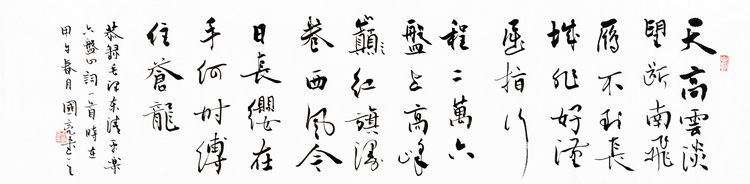 天高雲淡
望斷南飛
雁不到長
城非好漢
屈指行
程二萬六
盤上高峰
巔紅旗漫
卷西風今
日長纓在
手何時縛
住蒼龍
恭録毛澤東清平樂
六盤山詞一首時在
甲午春月國亮